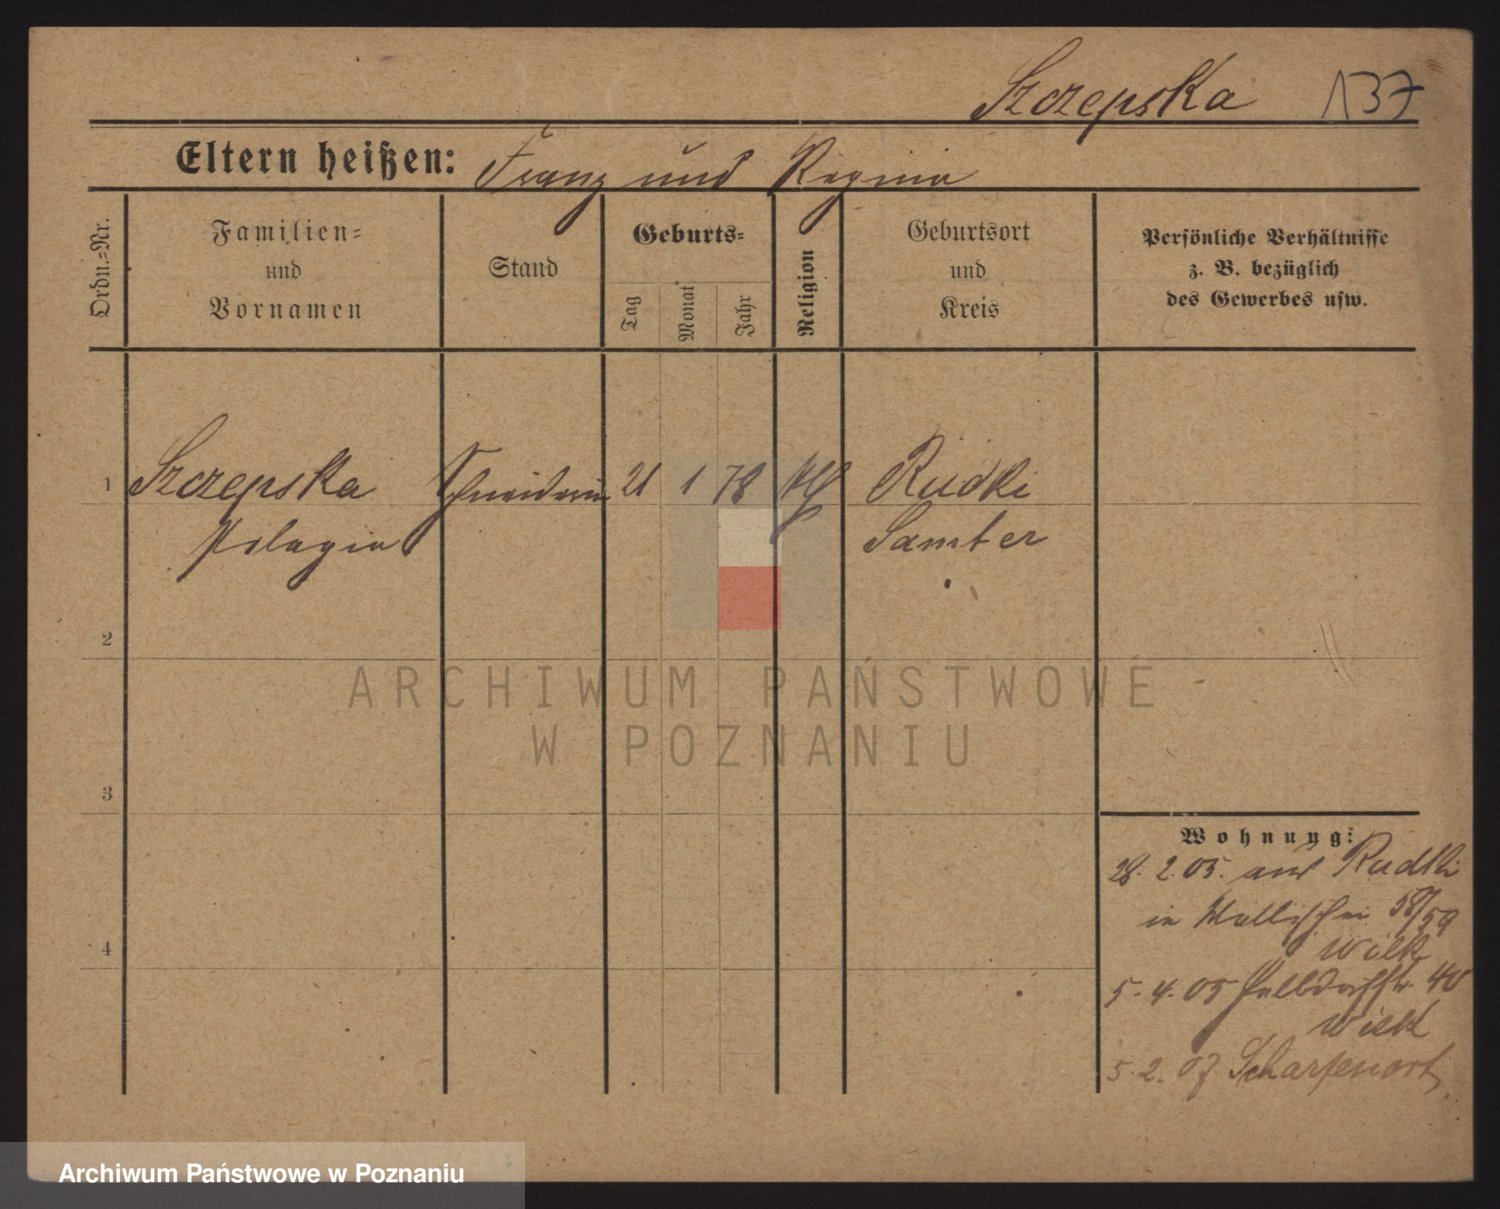 Szczepska 137
Eltern heißen: Franz und Regina
Ordn.-Nr.
Familien-
und
Vornamen
Stand
Geburts-
Tag
Monat
Jahr
Religion
Geburtsort
und
Kreis
Persönliche Verhältnisse
z. B. bezüglich
des Gewerbes usw.
1 Szczepska Schneiderin 21 1 78 kth Rudki
Pelagia Samter
2
3
4
Wohnung:
28. 2. 05. aus Rudki
in Wallischei 58/59
Wilk
5. 4. 05 Halbdorfstr. 40
Wilk
5. 2. 07 Scharfenort
ARCHIWUM PAŃSTWOWE
W POZNANIU
Archiwum Państwowe w Poznaniu